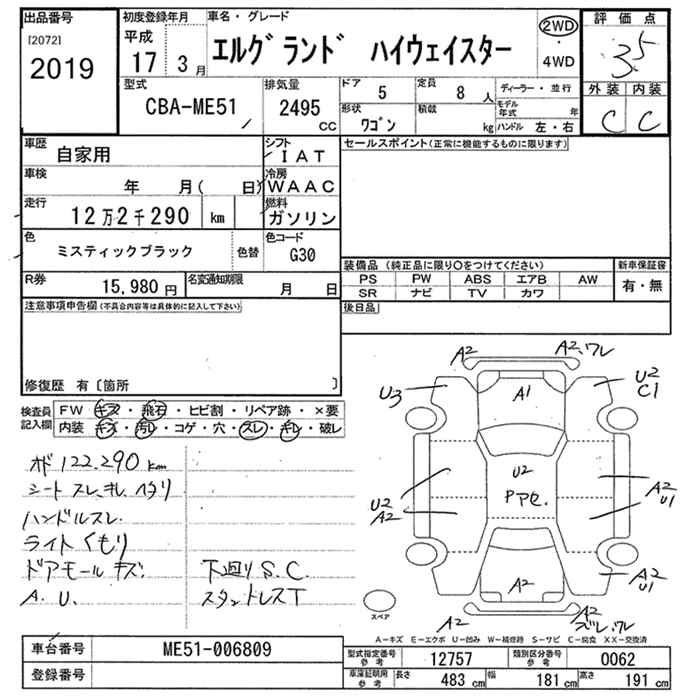 出品番号
[2072]
2019
初度登録年月
平成
17 3月
車名・グレード
エルグランド ハイウェイスター
2WD
・
4WD
評価点
3.5
外装 内装
C C
型式
CBA-ME51
排気量
2495
cc
ドア
5
定員
8 人
ディーラー・並行
形状
ワゴン
積載
kg
モデル
年式 年
ハンドル 左・右
車歴
自家用
シフト
IAT
セールスポイント(正常に機能するものに限ります)
車検
年 月( 日)
冷房
WAAC
走行
12万2千290 km
燃料
ガソリン
色
ミスティックブラック
色替
色コード
G30
R券
15,980円
名変通知期限
月 日
装備品(純正品に限り○をつけてください)
新車保証書
PS PW ABS エアB AW
有・無
SR ナビ TV カワ
後日品
注意事項申告欄(不具合内容等は具体的に記入して下さい)
修復歴 有〔箇所 〕
検査員
記入欄
FW キズ・飛石・ヒビ割・リペア跡・×要
内装 キズ・汚レ・コゲ・穴・スレ・キレ・破レ
メド 122.290 km
シート スレ、キレ、ヘタリ
ハンドルスレ.
ライトくもり
ドアモール キズ.
A. U.
下廻り S.C.
スタットレスT
A2
A2,ワレ
U3
A1
U2
C1
U2
Pアセ.
U2
A2
A2
U1
A2
A2
U1
A2
A2
ズレ,ワレ
スペア
A-キズ E-エクボ U-凹み W-補修跡 S-サビ C-腐食 XX-交換済
車台番号
ME51-006809
登録番号
型式指定番号
参考
12757
類別区分番号
参考
0062
車庫証明用
参考
長さ 483 cm
幅 181 cm
高さ 191 cm